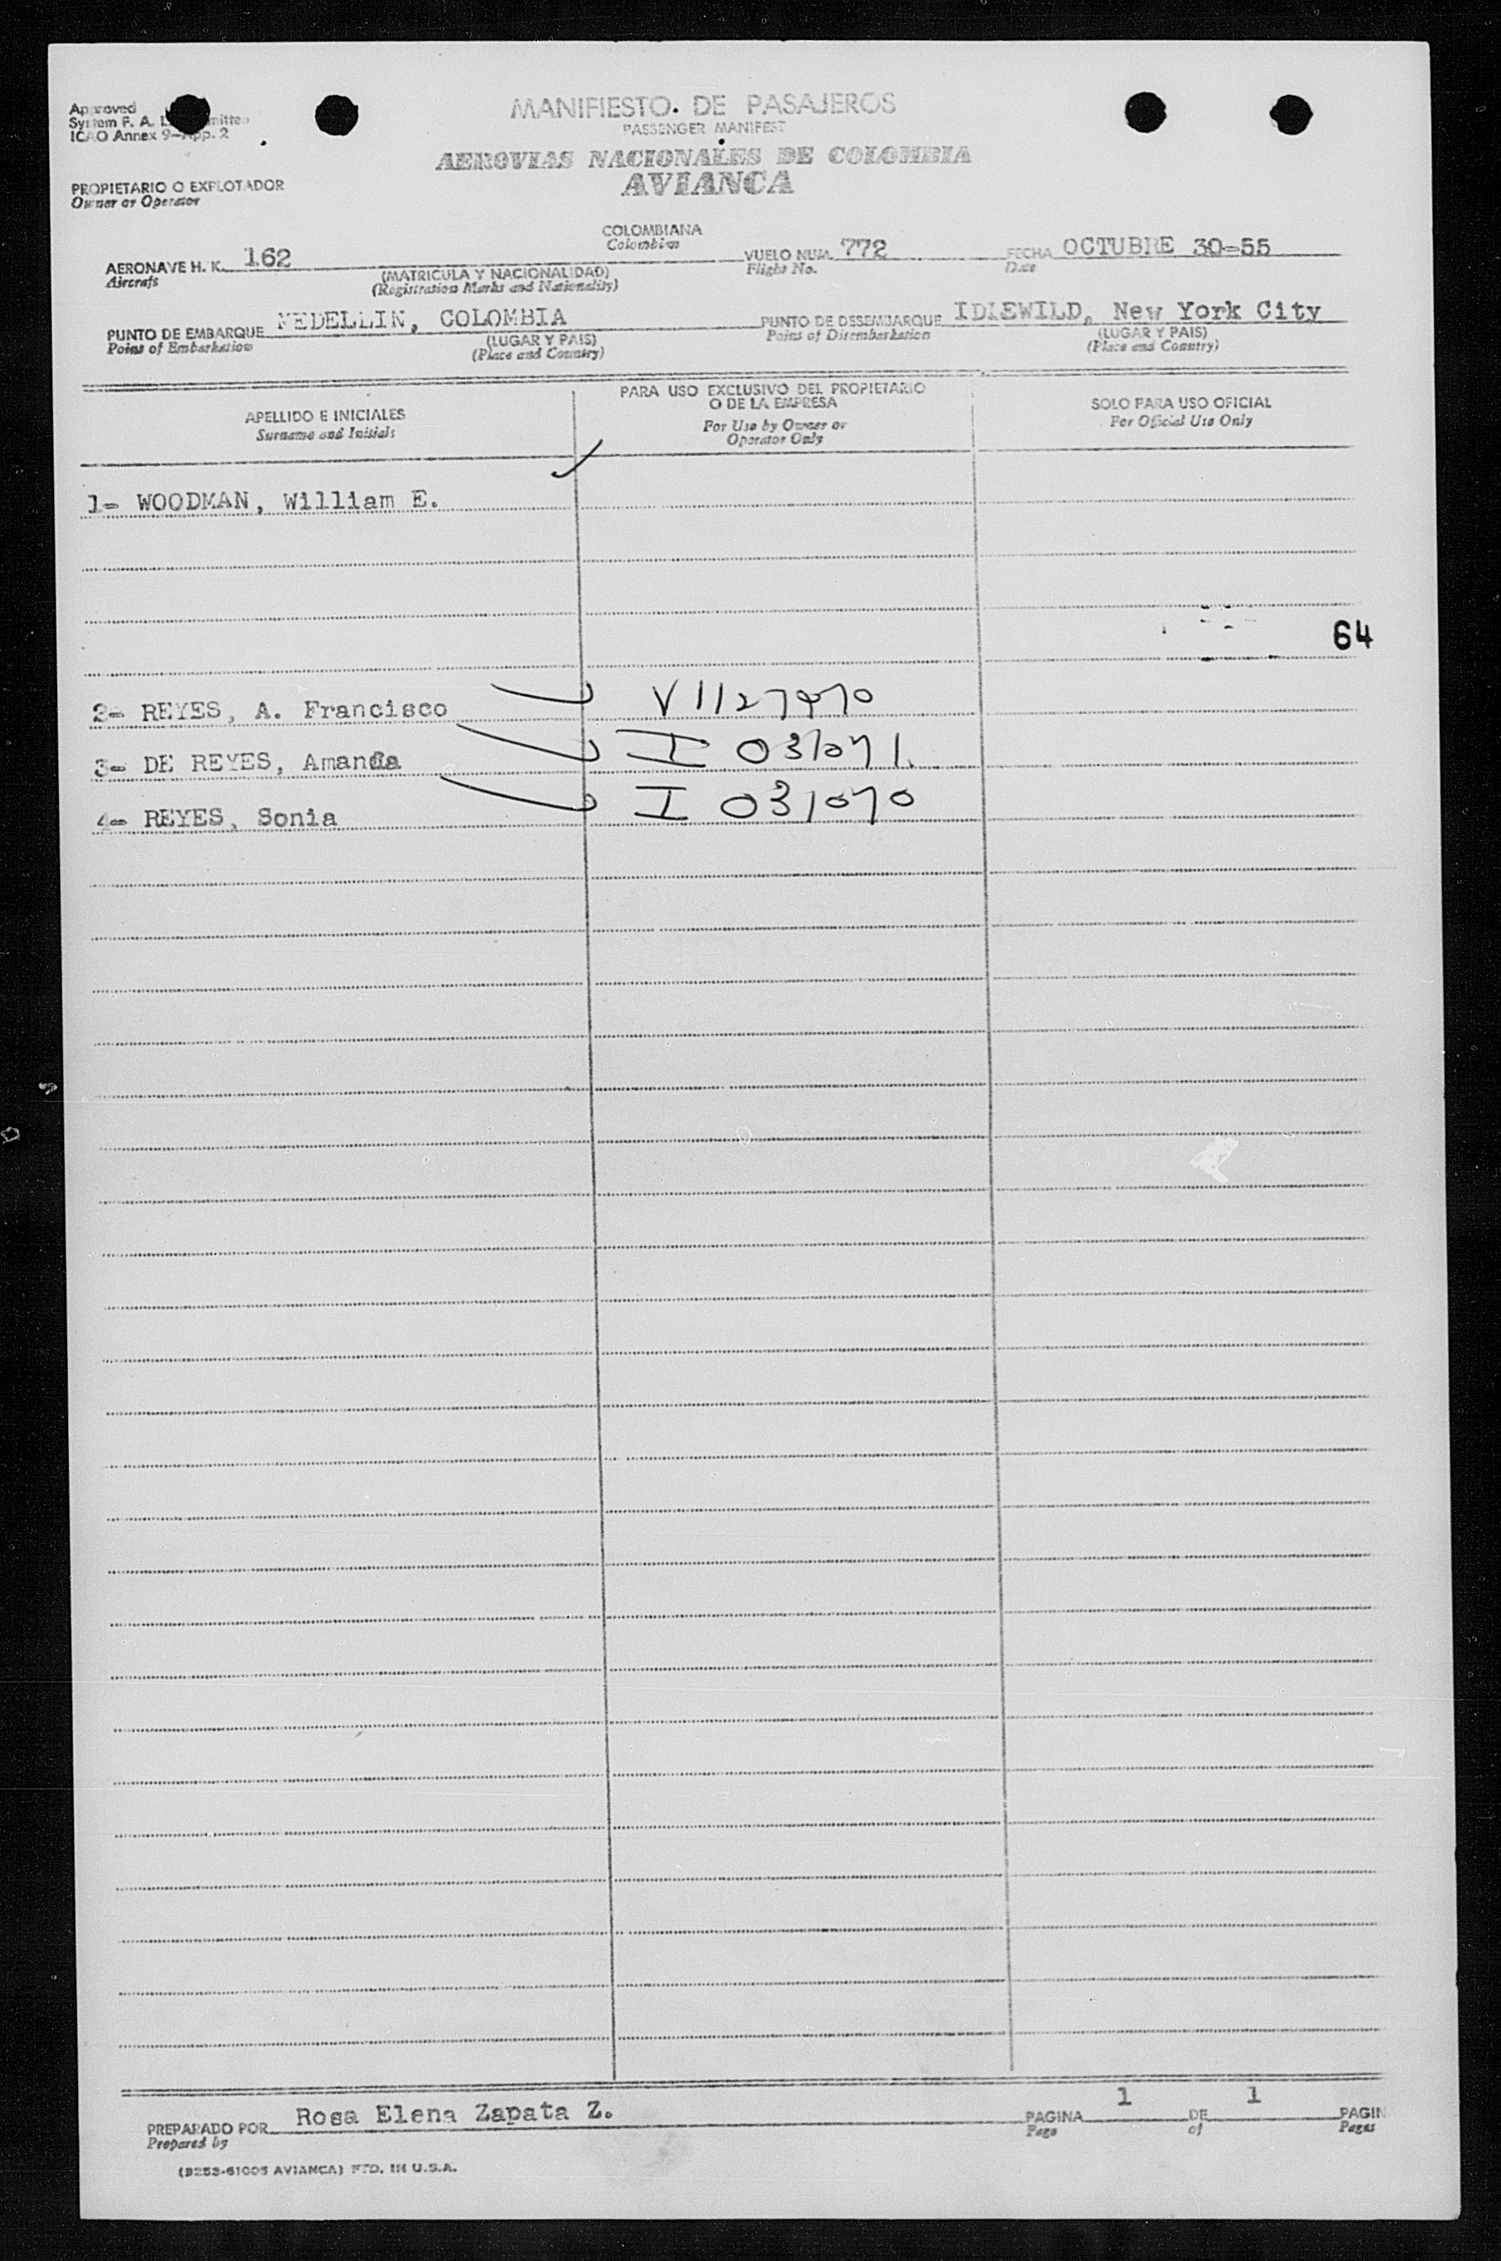 Approved
System F. A. L.
ICAO Annex 9-App. 2
MANIFIESTO DE PASAJEROS
PASSENGER MANIFEST
AEROVIAS NACIONALES DE COLOMBIA
AVIANCA
PROPIETARIO O EXPLOTADOR
Owner or Operator
COLOMBIANA
Colombian
AERONAVE H. K. 162
Aircraft
(MATRICULA Y NACIONALIDAD)
(Registration Marks and Nationality)
VUELO NUM. 772
Flight No.
FECHA OCTUBRE 30-55
Date
PUNTO DE EMBARQUE MEDELLIN, COLOMBIA
Point of Embarkation
(LUGAR Y PAIS)
(Place and Country)
PUNTO DE DESEMBARQUE IDLEWILD, New York City
Point of Disembarkation
(LUGAR Y PAIS)
(Place and Country)
APELLIDO E INICIALES
Surname and Initials
PARA USO EXCLUSIVO DEL PROPIETARIO
O DE LA EMPRESA
For Use by Owner or
Operator Only
SOLO PARA USO OFICIAL
For Official Use Only
1- WOODMAN, William E.
64
2- REYES, A. Francisco V1127870
3- DE REYES, Amanda I 031071
4- REYES, Sonia I 031070
PREPARADO POR Rosa Elena Zapata Z.
Prepared by
PAGINA 1 DE 1 PAGIN
Page of Pages
(B253-61005 AVIANCA) PTD. IN U.S.A.